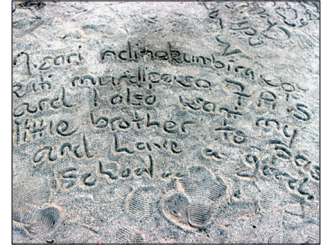 ndinokumbira
kuti mundipewo 7 A's
and I also want my
little brother to pass
and have a good
school